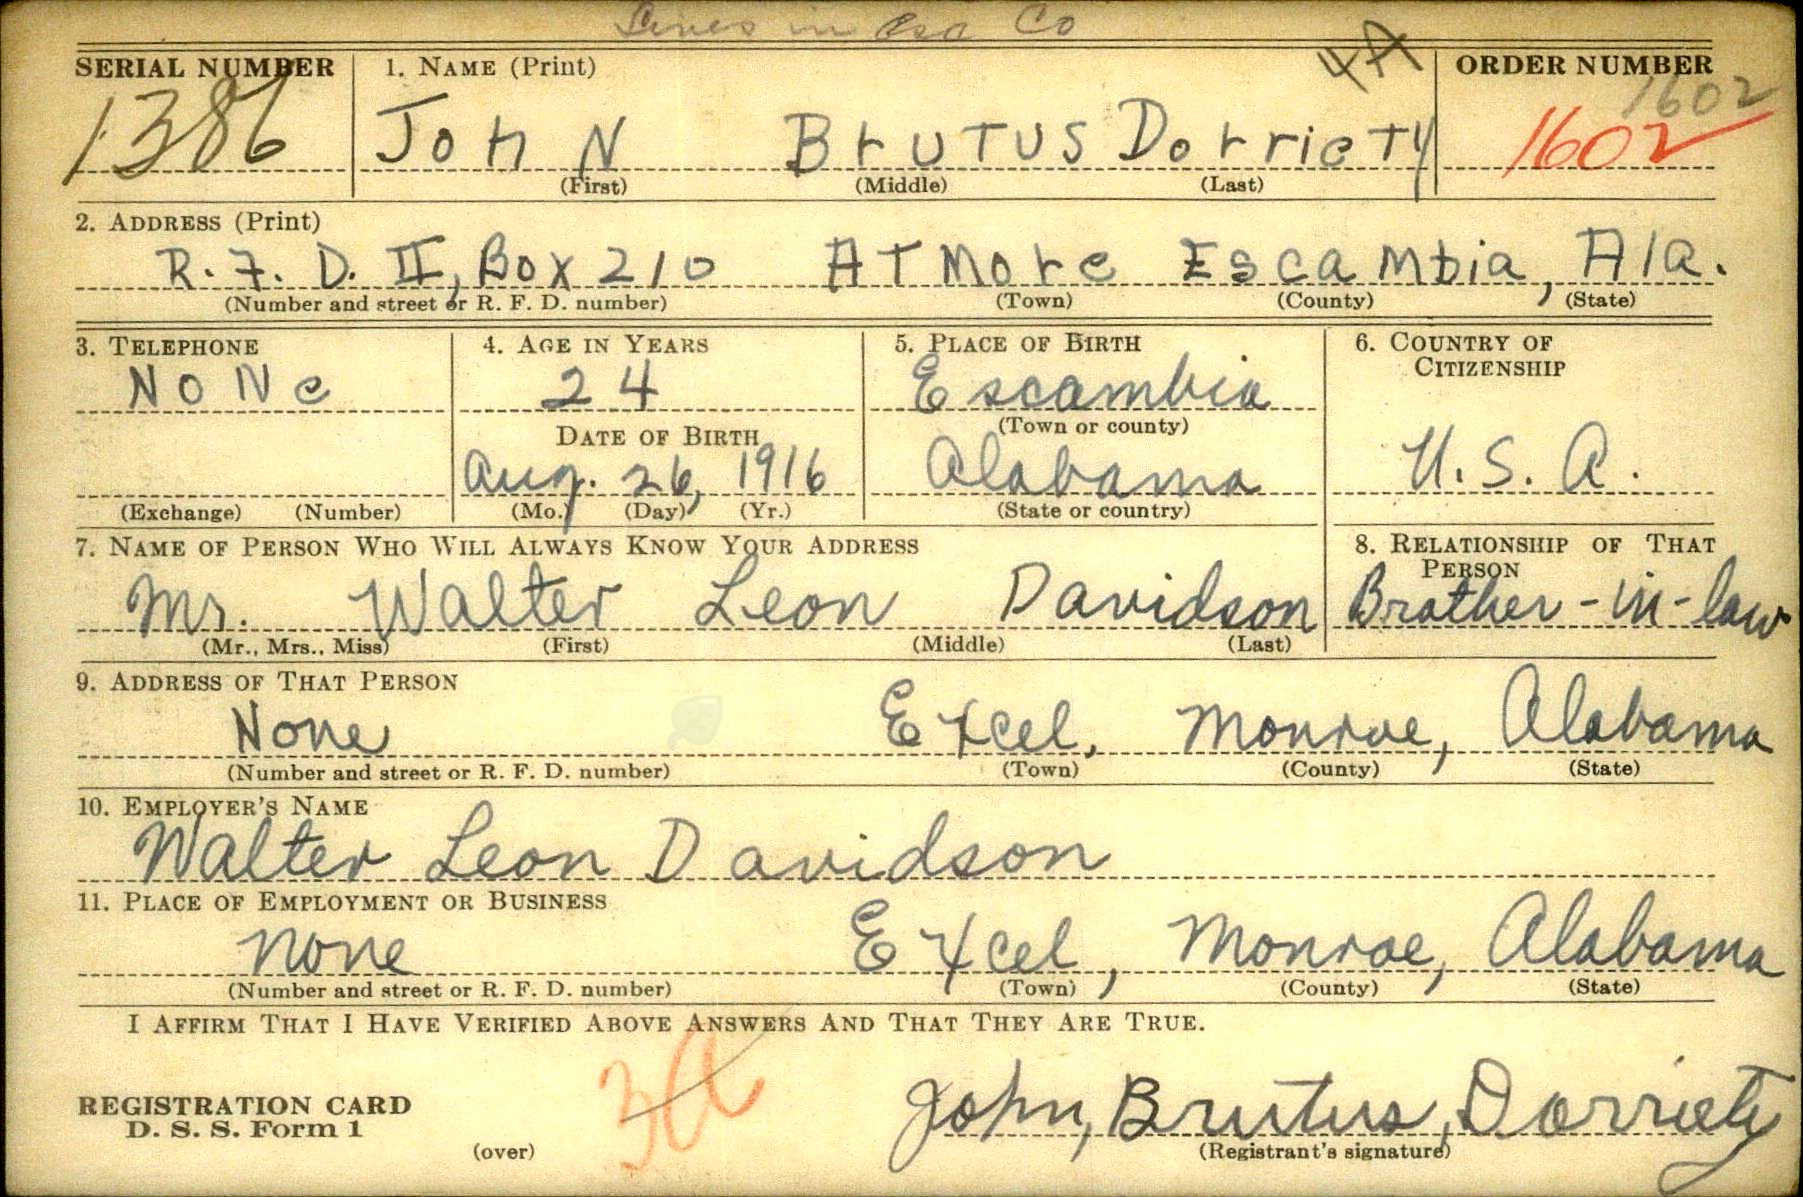 Lives in Esa Co
4A
SERIAL NUMBER
1. NAME (Print)
ORDER NUMBER
1602
1386
John Brutus Dorriety
1602
(First) (Middle) (Last)
2. ADDRESS (Print)
R. F. D. II, Box 210 Atmore Escambia, Ala.
(Number and street or R. F. D. number) (Town) (County) (State)
3. TELEPHONE
4. AGE IN YEARS
5. PLACE OF BIRTH
6. COUNTRY OF CITIZENSHIP
None
24
Escambia
(Town or county)
DATE OF BIRTH
Aug. 26, 1916
Alabama
U. S. A.
(Exchange) (Number)
(Mo.) (Day) (Yr.)
(State or country)
7. NAME OF PERSON WHO WILL ALWAYS KNOW YOUR ADDRESS
8. RELATIONSHIP OF THAT PERSON
Mr. Walter Leon Davidson
Brother-in-law
(Mr., Mrs., Miss) (First) (Middle) (Last)
9. ADDRESS OF THAT PERSON
None Excel, Monroe, Alabama
(Number and street or R. F. D. number) (Town) (County) (State)
10. EMPLOYER'S NAME
Walter Leon Davidson
11. PLACE OF EMPLOYMENT OR BUSINESS
None Excel, Monroe, Alabama
(Number and street or R. F. D. number) (Town) (County) (State)
I AFFIRM THAT I HAVE VERIFIED ABOVE ANSWERS AND THAT THEY ARE TRUE.
3A
REGISTRATION CARD
D. S. S. Form 1
(over)
John, Brutus, Dorriety
(Registrant's signature)